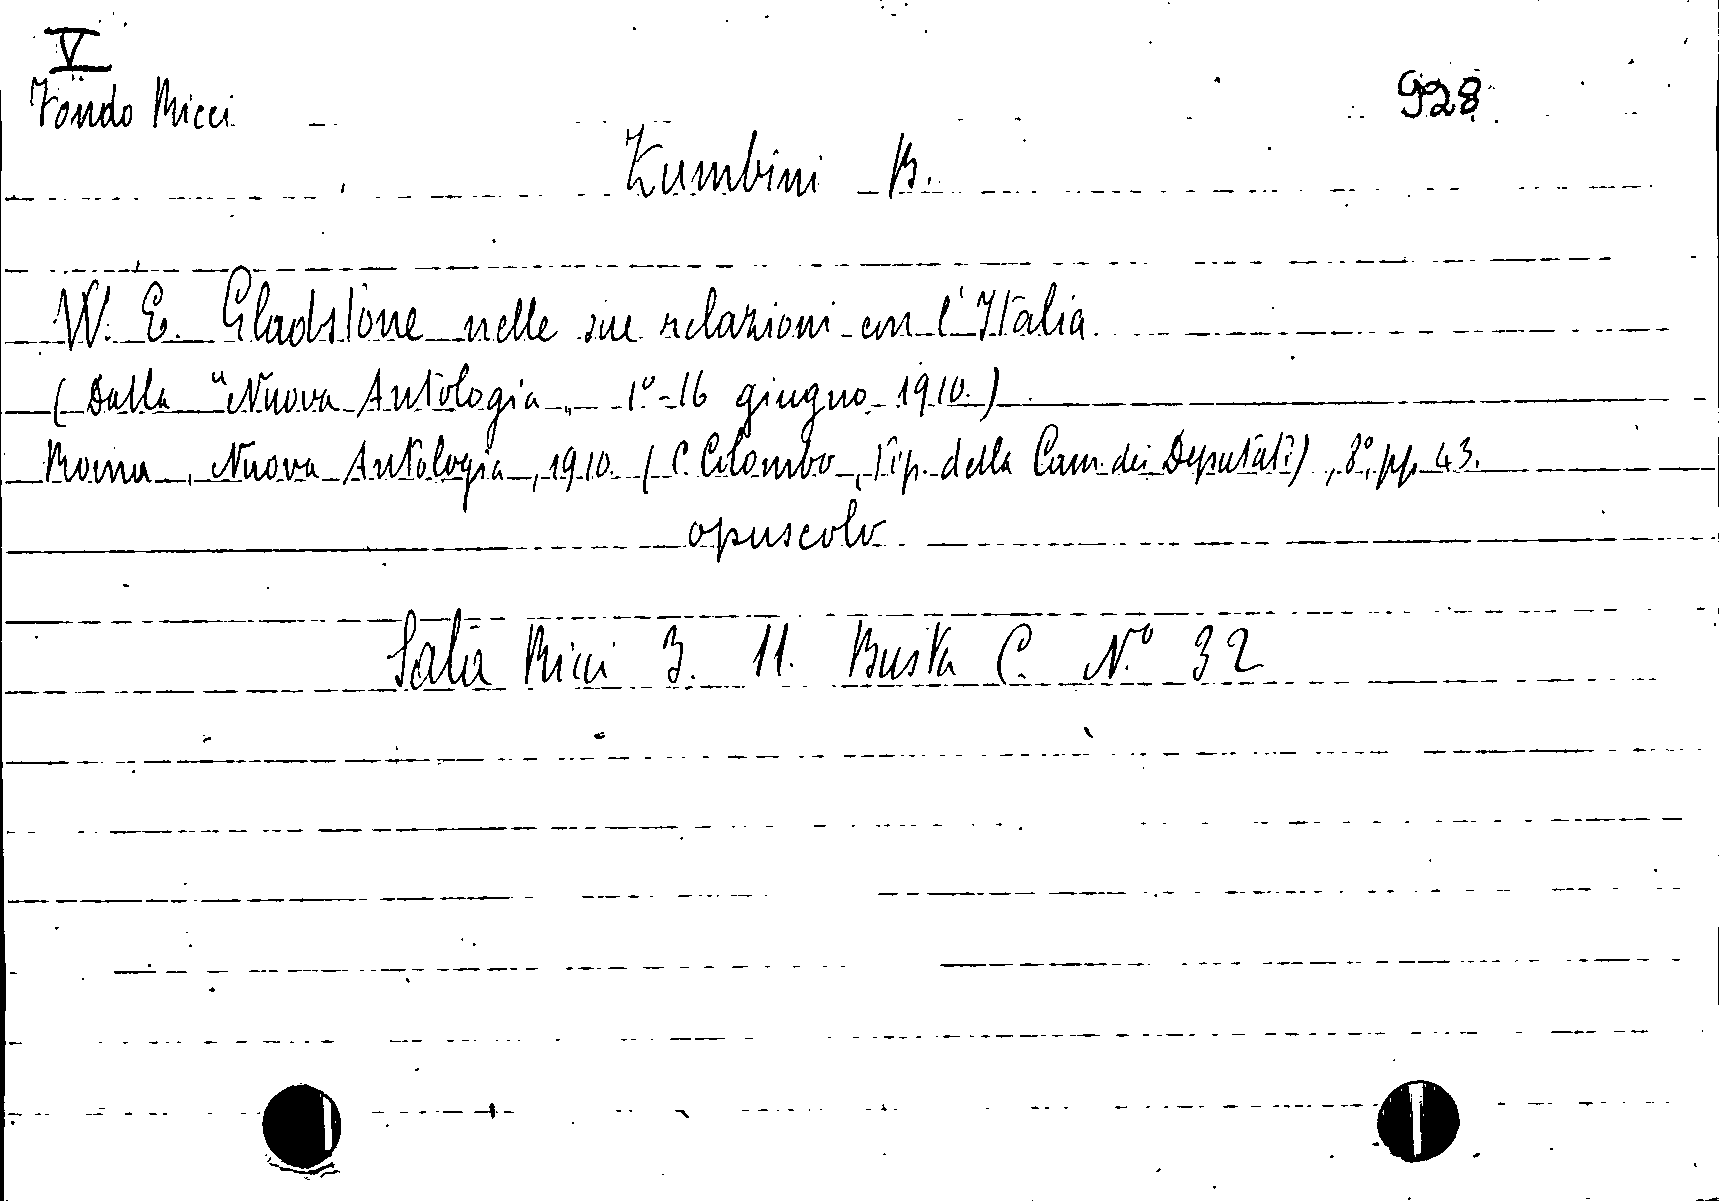 V
Fondo Ricci
928
Zumbini B.
W. E. Gladstone nelle sue relazioni con l'Italia
(Dalla "Nuova Antologia„ 1°-16 giugno 1910.)
Roma, Nuova Antologia, 1910. (C. Colombo, Tip. della Cam. dei Deputati), 8°, pp. 43.
opuscolo
Sala Ricci 3. 11. Busta C. N.° 32